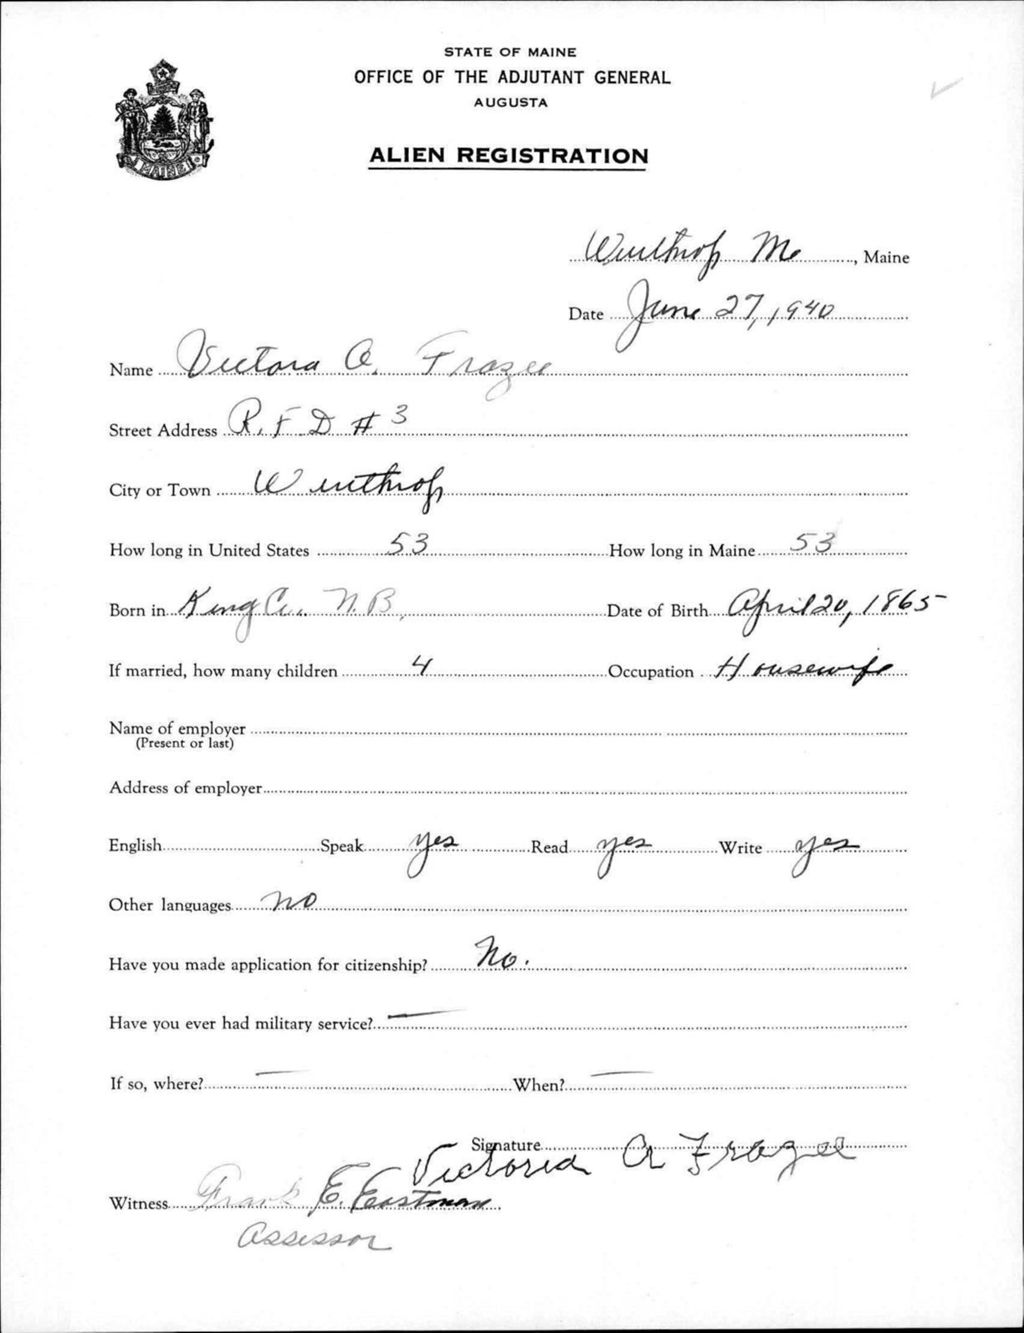 STATE OF MAINE
OFFICE OF THE ADJUTANT GENERAL
AUGUSTA
ALIEN REGISTRATION
MAINE
Winthrop Me, Maine
Date June 27, 1940
Name Victoria A. Frazee
Street Address R. F D # 3
City or Town Winthrop
How long in United States 53 How long in Maine 53
Born in King Co. N. B. Date of Birth April 20, 1865
If married, how many children 4 Occupation Housewife
Name of employer
(Present or last)
Address of employer
English Speak yes Read yes Write yes
Other languages no
Have you made application for citizenship? No.
Have you ever had military service? —
If so, where? — When? —
Signature Victoria A Frazee
Witness Frank E. Eastman
Assessor